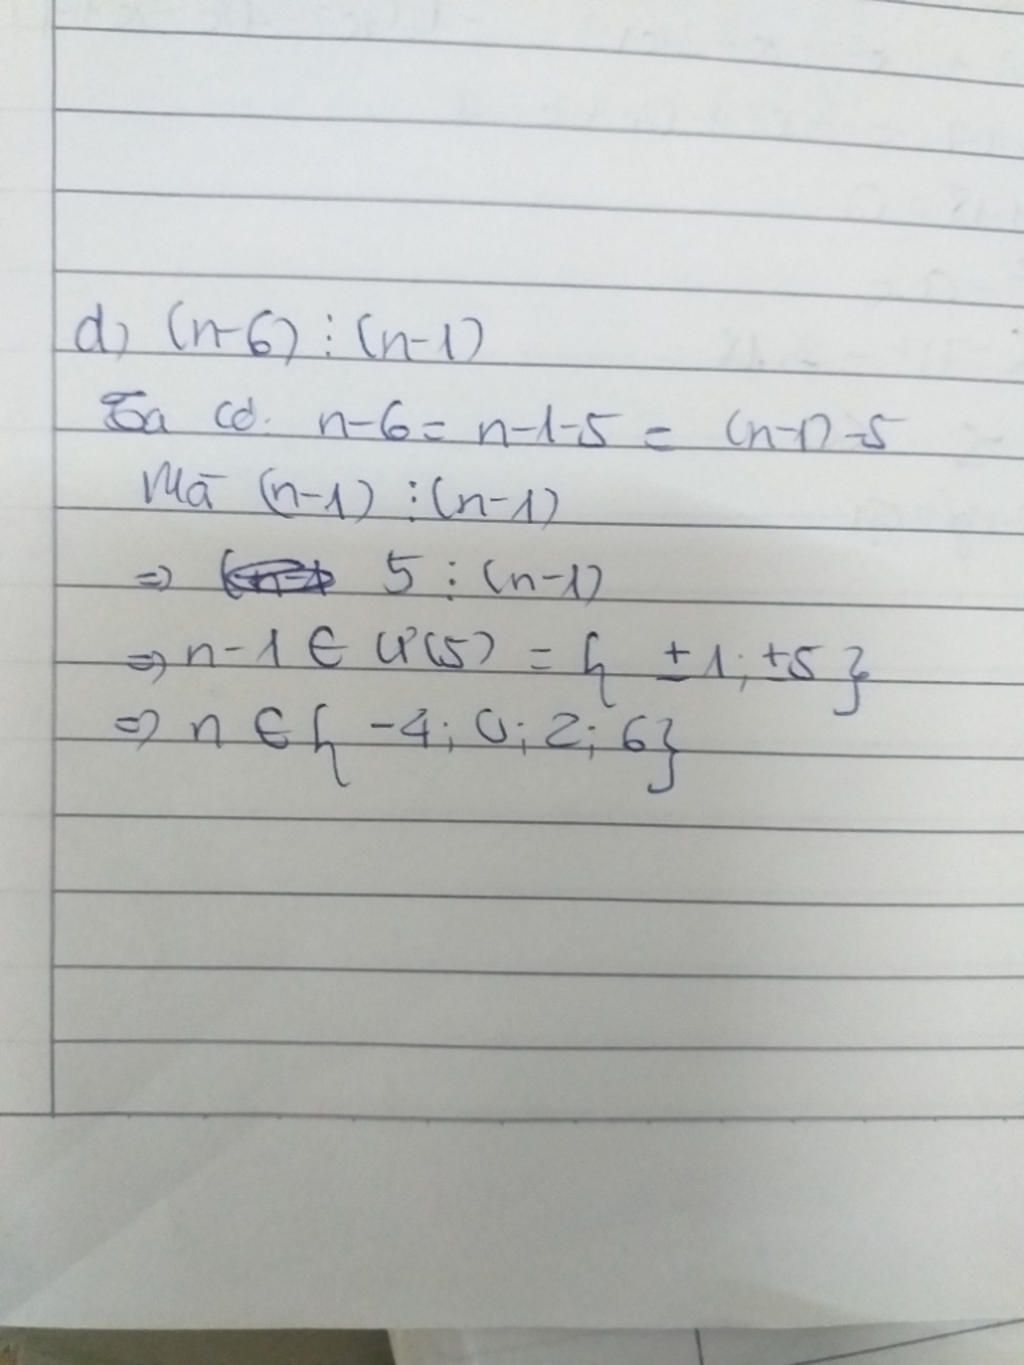 d) (n-6) ⋮ (n-1)
Ta có. n-6 = n-1-5 = (n-1)-5
Mà (n-1) ⋮ (n-1)
=> 5 ⋮ (n-1)
=> n-1 ∈ Ư(5) = { ±1; ±5}
=> n ∈ { -4; 0; 2; 6}